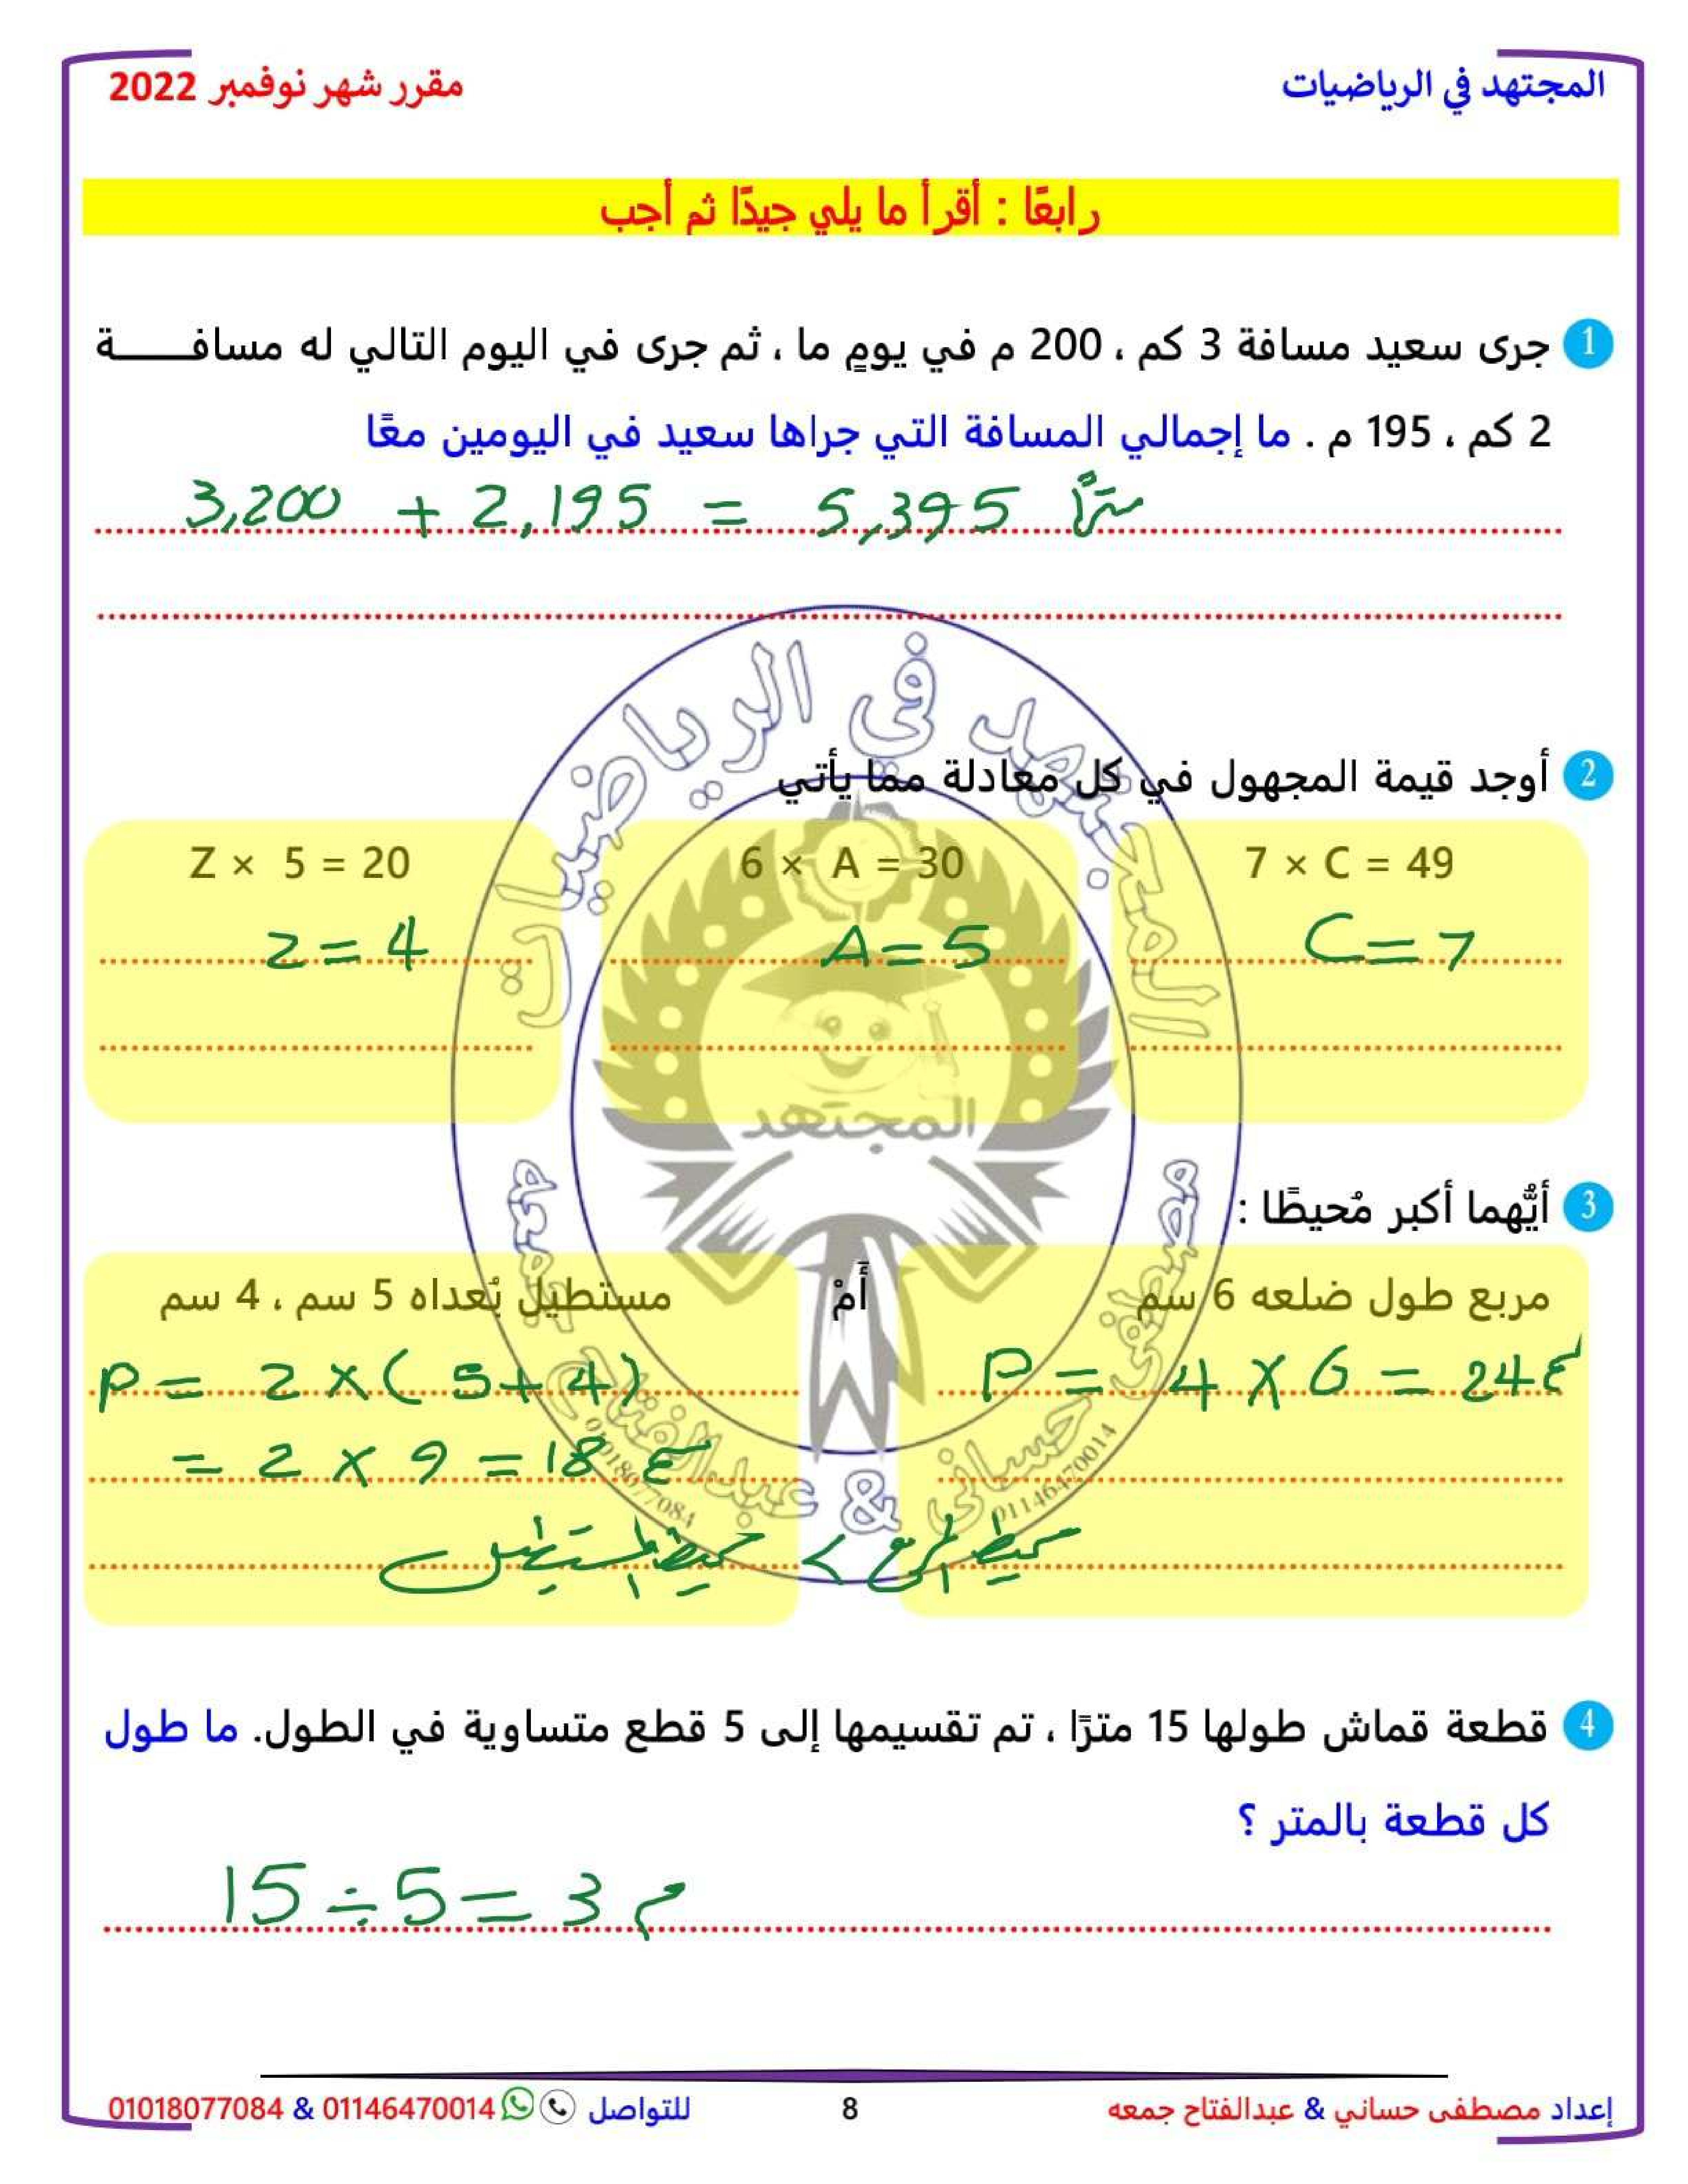 المجتهد في الرياضيات
مقرر شهر نوفمبر 2022
رابعًا : أقرأ ما يلي جيدًا ثم أجب
1 جرى سعيد مسافة 3 كم ، 200 م في يومٍ ما ، ثم جرى في اليوم التالي له مسافـــــة
2 كم ، 195 م . ما إجمالي المسافة التي جراها سعيد في اليومين معًا
3,200 + 2,195 = 5,395 مترًا
2 أوجد قيمة المجهول في كل معادلة مما يأتي
7 × C = 49
6 × A = 30
Z × 5 = 20
C = 7
A = 5
z = 4
3 أيُّهما أكبر مُحيطًا :
مربع طول ضلعه 6 سم
أَمْ
مستطيل بُعداه 5 سم ، 4 سم
P = 4 × 6 = 24 سم
P = 2 × ( 5 + 4 )
= 2 × 9 = 18 سم
محيط المربع > محيط المستطيل
4 قطعة قماش طولها 15 مترًا ، تم تقسيمها إلى 5 قطع متساوية في الطول. ما طول
كل قطعة بالمتر ؟
15 ÷ 5 = 3 م
المجتهد في الرياضيات
المجتهد
مصطفى حساني & عبدالفتاح جمعه
01146470014
01018077084
إعداد مصطفى حساني & عبدالفتاح جمعه
8
للتواصل 01146470014 & 01018077084